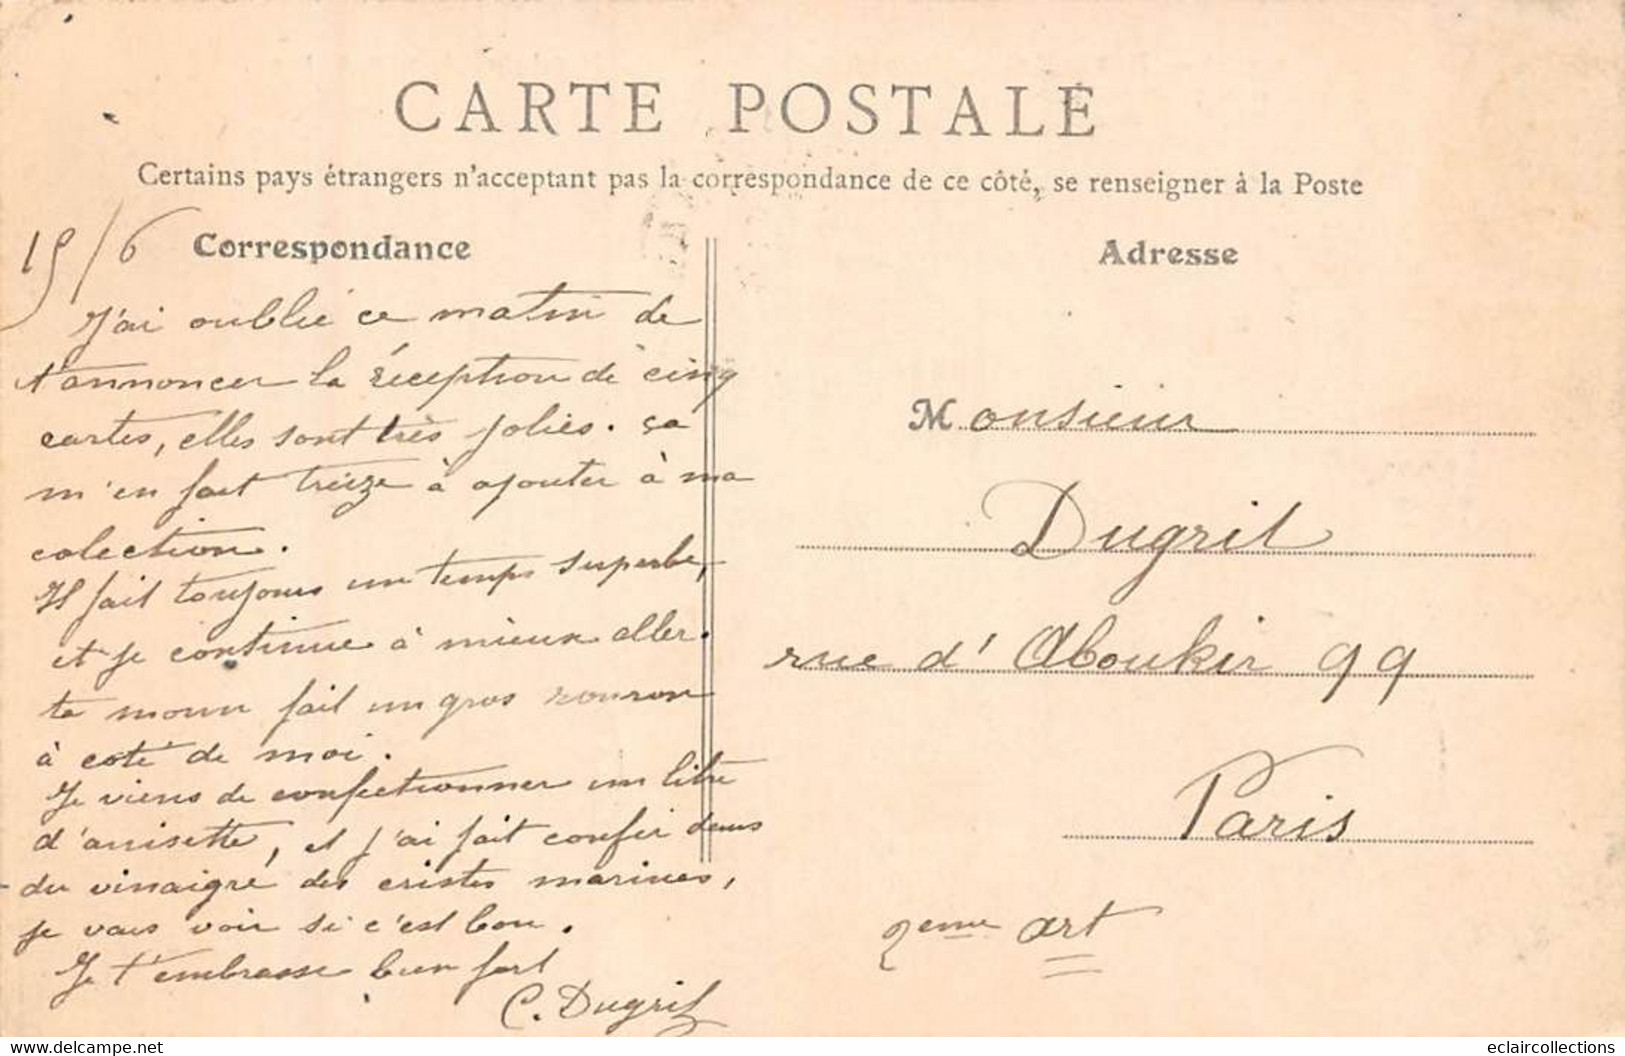 CARTE POSTALE
Certains pays étrangers n'acceptant pas la correspondance de ce côté, se renseigner à la Poste
15/6
Correspondance
J'ai oublié ce matin de
t'annoncer la réception de cinq
cartes, elles sont très jolies. ça
m'en fait treize à ajouter à ma
colection.
Il fait toujours un temps superbe,
et je continue à mieux aller.
ta moun fait un gros ronron
à coté de moi.
Je viens de confectionner un litre
d'anisette, et j'ai fait confir dans
du vinaigre des cristes marines,
je vais voir si c'est bon.
Je t'embrasse bien fort
C. Dugril
Adresse
Monsieur
Dugril
rue d'Aboukir 99
Paris
2eme art
www.delcampe.net
eclaircollections